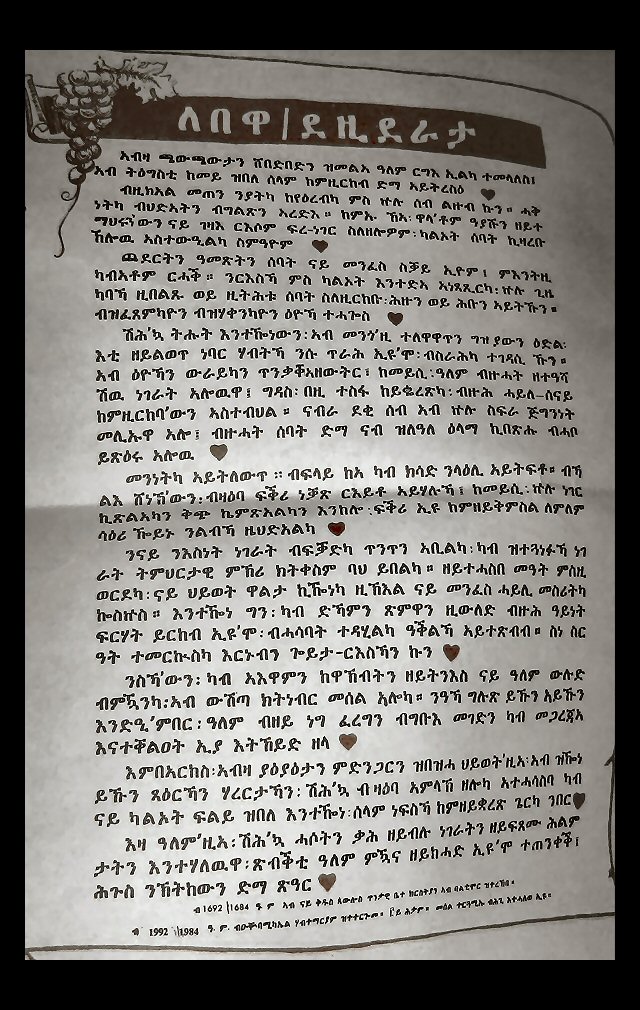 ለበዋ|ደዚደራታ
ኣብዛ ጫውጫውታን ሸበድበድን ዝመልኣ ዓለም ርግእ ኢልካ ተመላለስ፤
ኣብ ትዕግስቲ ከመይ ዝበለ ሰላም ከምዚርከብ ድማ ኣይትረስዕ
ብዚክኣል መጠን ንያትካ ከየዕረብካ ምስ ኵሉ ሰብ ልዙብ ኩን። ሓቅ
ነትካ ብህድኣትን ብግልጽን ኣረድእ።
ማህሩን'ውን ናይ ገዛእ ርእሶም ፍረ-ነገር ስለዘሎዎም፡ካልኦት ሰባት ኪዛረቡ
ኸሎዉ ኣስተውዒልካ ስምዓዮም
ጨደርትን ዓመጽትን ሰባት ናይ መንፈስ ስቓይ ኢዮም፤ ምእንትዚ
ካብኣቶም ርሓቕ። ንርእስኻ ምስ ካልኦት እንተድኣ ኣነጻጺርካ፡ኵሉ ጊዜ
ካባኻ ዚበልጹ ወይ ዚትሕቱ ሰባት ስለዚርከቡ፡ሕዙን ወይ ሕቡን ኣይትኹን።
ብዝፈጸምካዮን ብዝሃቀንካዮን ዕዮኻ ተሓጐስ
ሽሕ'ኳ ትሑት እንተዀነ'ውን፡ኣብ መንጎ'ዚ ተለዋዋጥን ግዝያውን ዕድል፡
እቲ ዘይልወጥ ነባር ሃብትኻ ንሱ ጥራሕ ኢዩ'ሞ፡ብስራሕካ ተገዳሲ ኹን።
ኣብ ዕዮኻን ውራይካን ጥንቃቐኣዘውትር፤ ከመይሲ፡ዓለም ብዙሓት ዘተዓሻ
ሽዉ ነገራት ኣሎዉዋ፤ ግዳስ፡በዚ ተስፋ ከይቈረጽካ፡ብዙሕ ሓይለ-ሰናይ
ከምዚርከባ'ውን ኣስተብህል። ናብራ ደቂ ሰብ ኣብ ኵሉ ስፍራ ጅግንነት
መሊኡዋ ኣሎ፤ ብዙሓት ሰባት ድማ ናብ ዝለዓለ ዕላማ ኪበጽሑ ብሓቦ
ይጽዕሩ ኣሎዉ
መንነትካ ኣይትለውጥ ። ብፍላይ ከኣ ካብ ክሳድ ንላዕሊ ኣይትፍቶ። ብኻ
ልእ ሸነኽ'ውን፡ብዛዕባ ፍቕሪ ነቓጽ ርእይቶ ኣይሃሉኻ፤ ከመይሲ፡ኵሉ ነገር
ኪጽልኣካን ቅጭ ኬምጽኣልካን እንከሎ፡ፍቕሪ ኢዩ ከምዘይቅምስል ለምለም
ሳዕሪ ዀይኑ ንልብኻ ዜህድኣልካ
ንናይ ንእስነት ነገራት ብፍቓድካ ጥንጥን ኣቢልካ፡ካብ ዝተጓነፉኻ ነገ
ራት ትምህርታዊ ምኽሪ ክትቀስም ባህ ይበልካ። ዘይተሓስበ መዓት ምስዚ
ወርደካ፡ናይ ህይወት ዋልታ ኪዀነካ ዚኽእል ናይ መንፈስ ሓይሊ መስሪትካ
ኰስኵስ። እንተዀነ ግን፡ካብ ድኻምን ጽምዋን ዚውለድ ብዙሕ ዓይነት
ፍርሃት ይርከብ ኢዩ'ሞ፡ብሓሳባት ተዳሂልካ ዓቕልኻ ኣይተጽብብ። ስነ ስር
ዓት ተመርኲስካ እርኑብን ጐይታ-ርእስኻን ኩን
ንስኻ'ውን፡ ካብ ኣእዋምን ከዋኽብትን ዘይትንእስ ናይ ዓለም ውሉድ
ብምዃንካ፡ኣብ ውሽጣ ክትነብር መሰል ኣሎካ። ንዓኻ ግሉጽ ይኹን ኣይኹን
እንድዒ'ምበር፡ ዓለም ብዘይ ነግ ፈረግን ብግቡእ መገድን ካብ መጋረጃኣ
እናተቐልዐት ኢያ እትኸይድ ዘላ
እምበኣርከስ፡ኣብዛ ያዕያዕታን ምድንጋርን ዝበዝሓ ህይወት'ዚኣ፡ኣብ ዝዀነ
ይኹን ጻዕርኻን ሃረርታኻን፡ ሽሕ'ኳ ብዛዕባ ኣምላኽ ዘሎካ ኣተሓሳስባ ካብ
ናይ ካልኦት ፍልይ ዝበለ እንተዀነ፡ሰላም ነፍስኻ ከምዘይቋረጽ ጌርካ ንበር
እዛ ዓለም'ዚኣ፡ ሽሕ'ኳ ሓሶትን ቃሕ ዘይብሉ ነገራትን ዘይፍጸሙ ሕልም
ታትን እንተሃለዉዋ፡ጽብቕቲ ዓለም ምዃና ዘይከሓድ ኢዩ'ሞ ተጠንቀቕ፤
ሕጉስ ንኽትከውን ድማ ጽዓር
ብ 1692 |1684 ዓ. ም ኣብ ናይ ቅዱስ ጳውሎስ ጥንታዊ ቤተ ክርስቲያን ኣብ ባልቲሞር ዝተረኽበ።
ብ 1992 |1984 ዓ. ም. ሃብተማርያም ዝተተርጐመ።